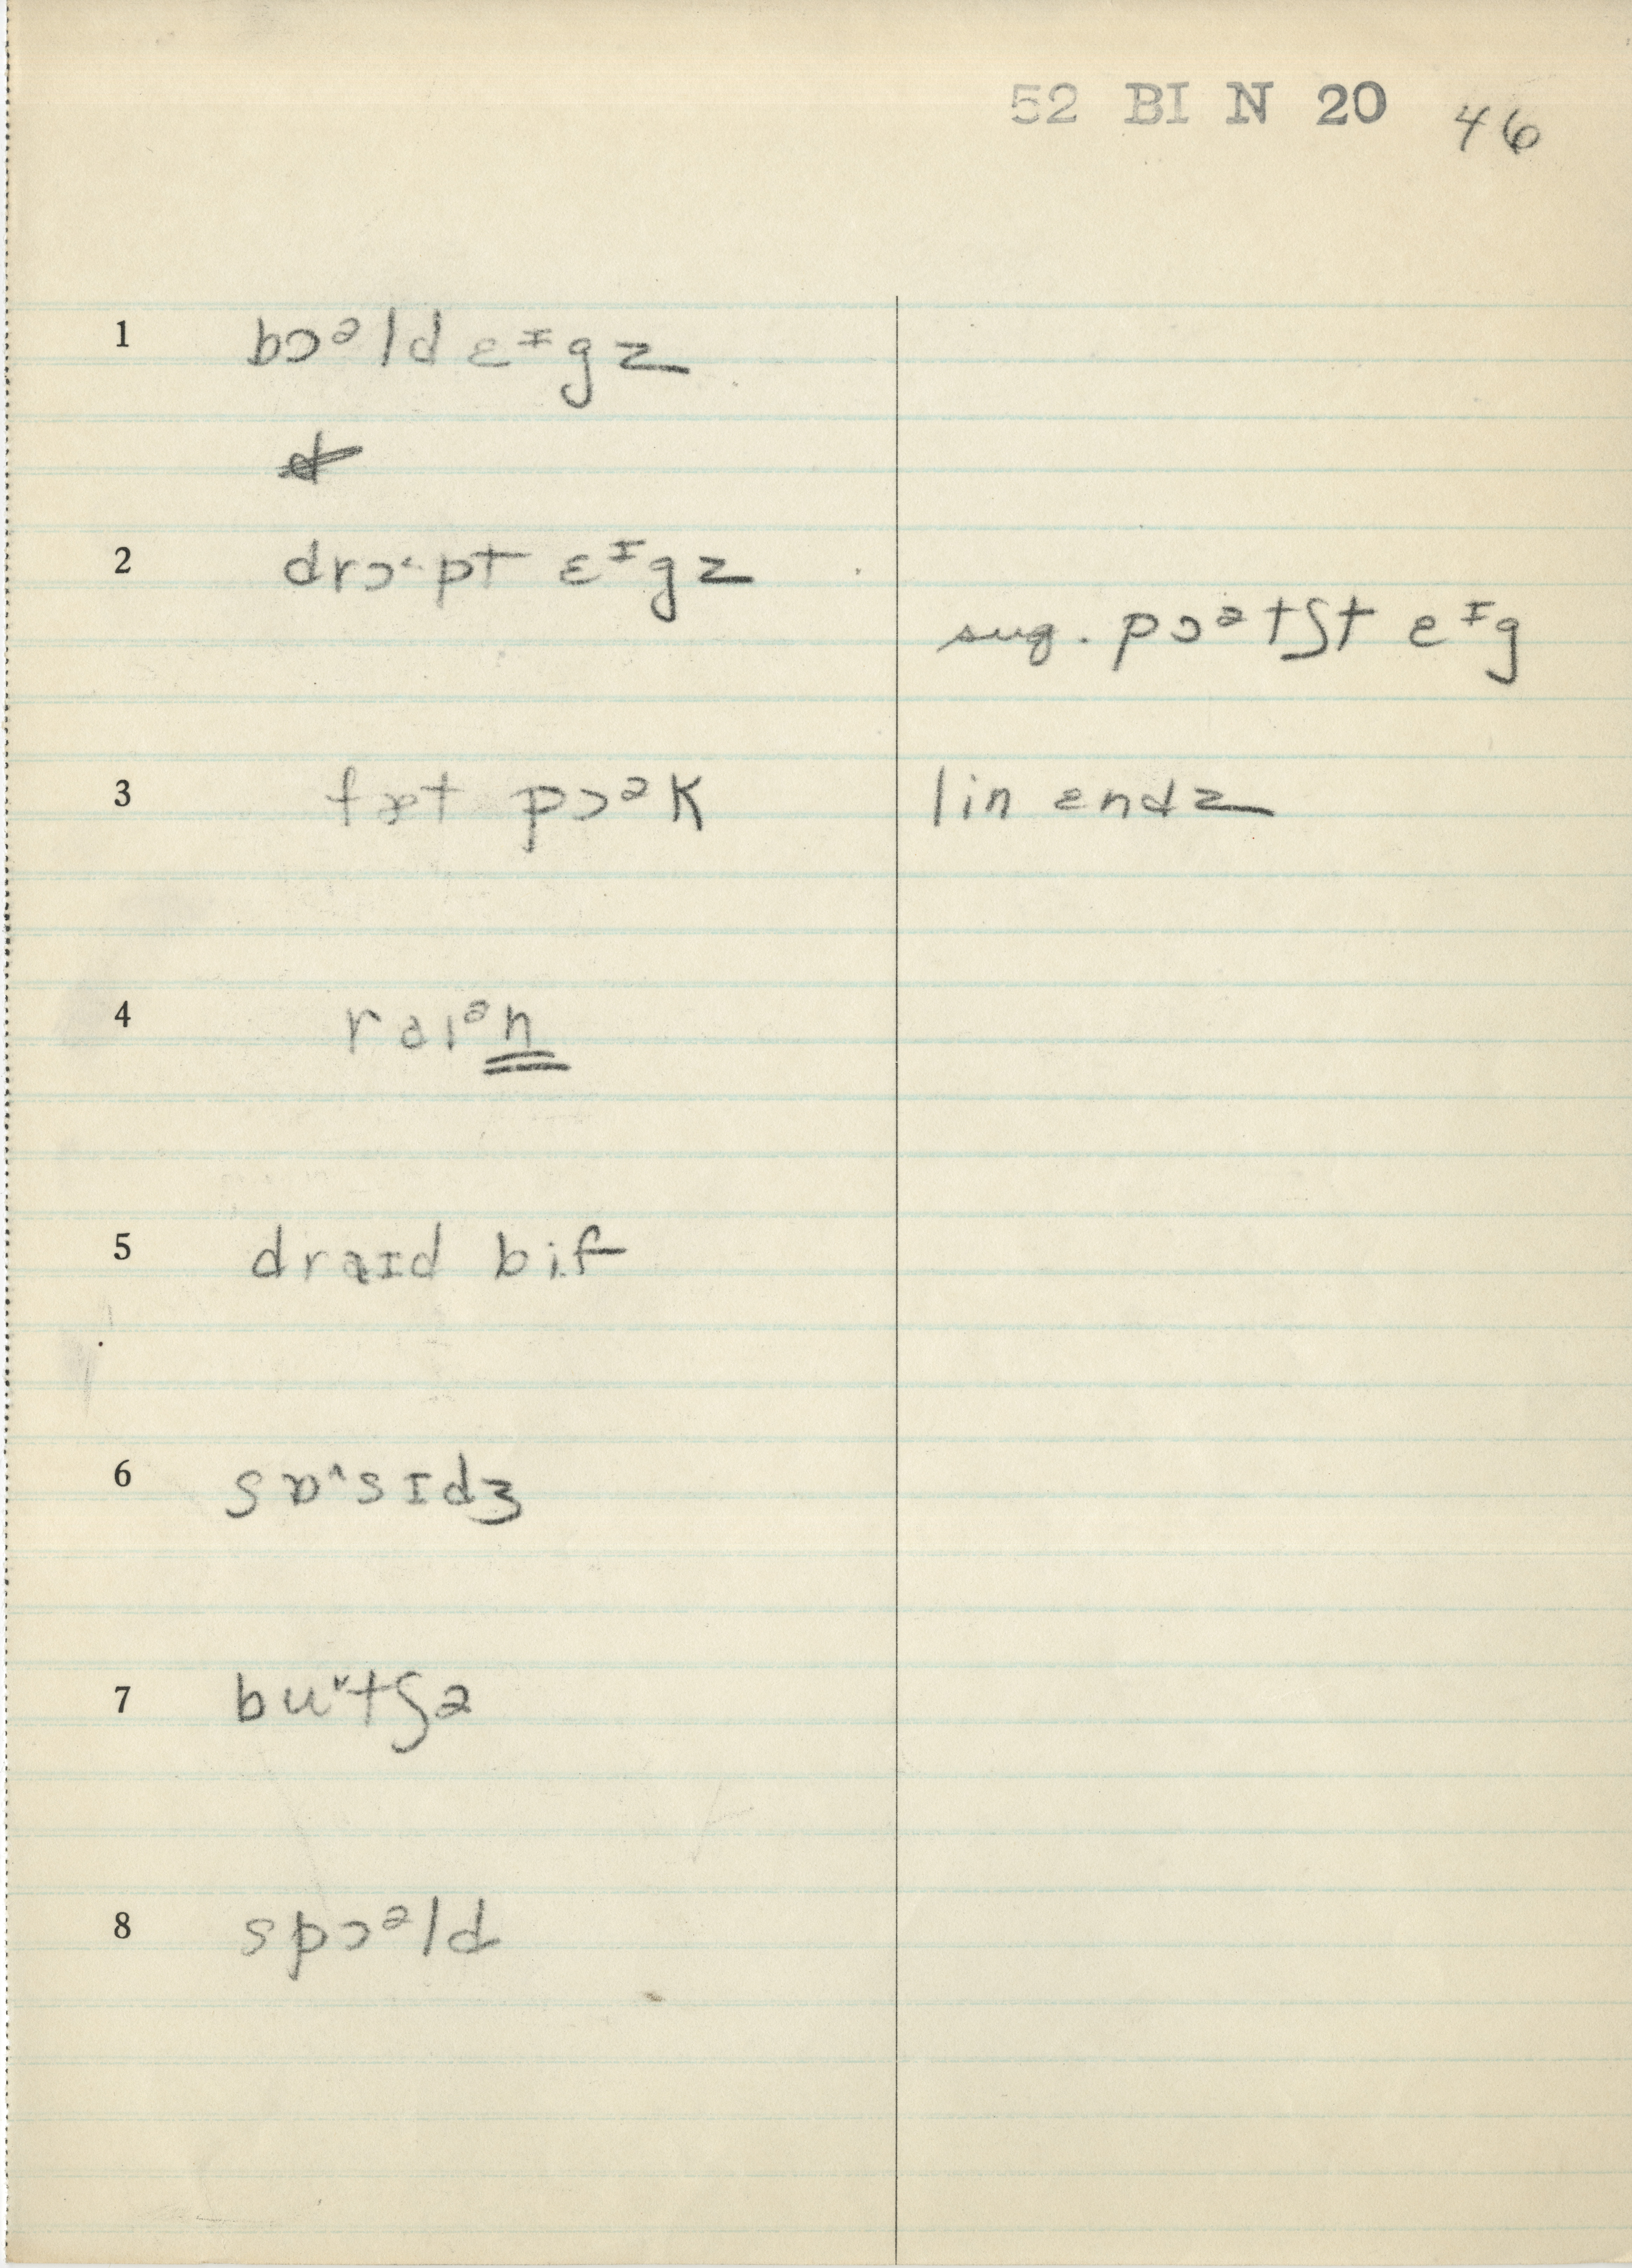 52 BI N 20 46
1 bɔᵊld ɛᶦgz
2 drɔ˞pt ɛᶦgz
sug. pɔᵊtʃt ɛᶦg
3 fæt pɔᵊk lin ɛndz
4 raɪᵊn
5 draɪd bif
6 sɒ^sɪdʒ
7 buᵛtʃə
8 spɔᵊld